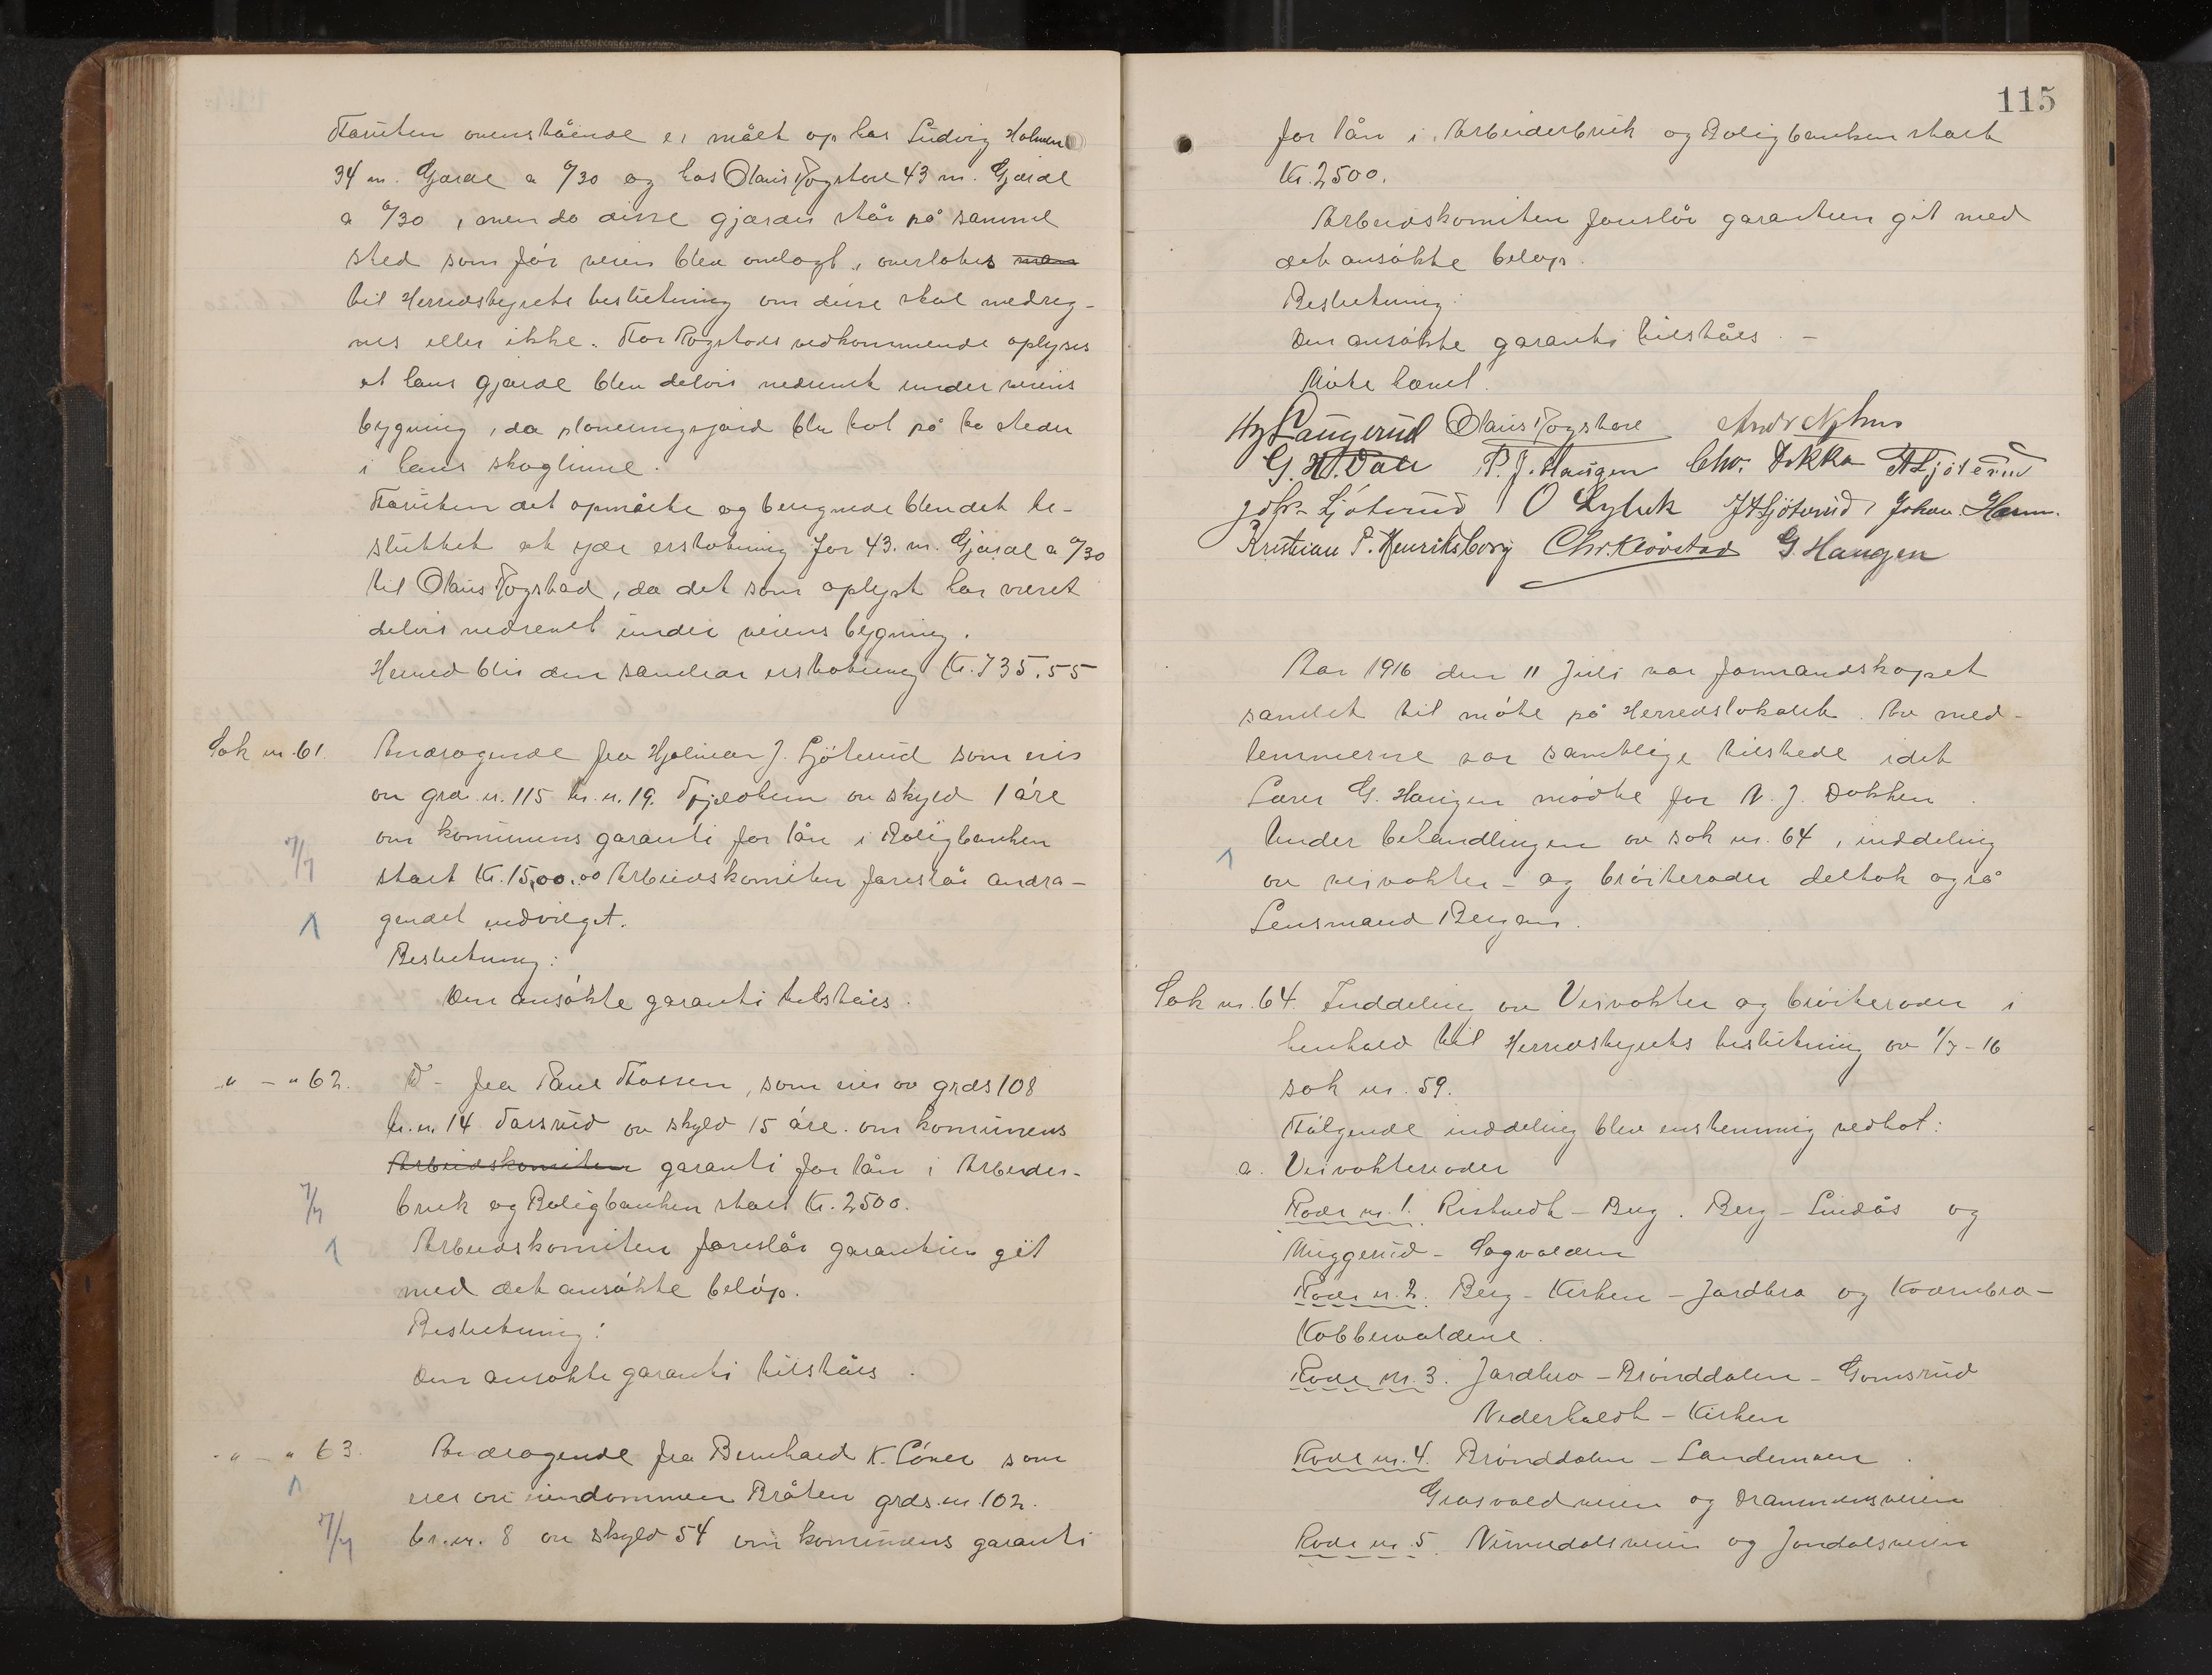 Foruten ovenstående er målt op hos Ludvig Holmen
34 m. Gjærde a 0/30 og hos Olaus Rogstad 43 m. Gjærde
a 0/30, men da disse gjærder står på samme
sted som før veien blev omlagt, overlates
til Herredsstyrets beslutning om disse skal medreg-
nes eller ikke. For Rogstads vedkommende oplyses
at hans gjærde blev delvis nedrevet under veiens
bygning, da planeringsjord blev tat på to steder
i hans skoglinne.
Foruten det opmålte og beregnede blev det be-
sluttet at yde erstatning for 43. m. Gjærde a 0/30
til Olaus Rogstad, da det som oplyst har været
delvis nedrevet under veiens bygning.
Herved blir den samlede erstatning Kr. 735.55
Sak nr. 61. Andragende fra Hjalmar J. Ljøterud som eier
av grd. nr. 115 br. nr. 19. av skyld 1 øre
om kommunens garanti for lån i Boligbanken
7/7
stort Kr. 1500.00 Arbeidskomiten foreslår andra-
gendet indvilget.
Beslutning:
Den ansøkte garanti tilståes.
" - " 62. Do - fra Paul Fossen, som eier av grds 108
br. nr. 14 Forsrud av skyld 15 øre. om kommunens
Arbeidskomiten garanti for lån i Arbeider-
7/7
bruk og Boligbanken stort Kr. 2500.
Arbeidskomiten foreslår garantien git
med det ansøkte beløp.
Beslutning:
Den ansøkte garanti tilståes.
" - " 63. Andragende fra Bernhard K. som
eier av eiendommen Bråten grds. nr. 102.
7/7
br. nr. 8 av skyld 54 om kommunens garanti
115
for lån i Arbeiderbruk og Boligbanken stort
Kr. 2500.
Arbeidskomiten foreslår garantien git med
det ansøkte beløp.
Beslutning:
Den ansøkte garanti tilståes. -
Møte hævet.
Hg Laugerud Olaus Rogstad Andr Nyhus
G. H. Dale P. J. Haugen Chr. Dokka A Ljøterud
Johs. Ljøterud O Lybek J H Ljøterud Johan Hamr.
Kristian P. Henriksborg Chr. Kløvstad G. Haugen
Aar 1916 den 11 Juli var formandskapet
samlet til møte på Herredslokalet. Av med-
lemmerne var samtlige tilstede idet
Lærer G. Haugen møtte for N. J. Dokken.
Under behandlingen av sak nr. 64, inddeling
av veivokter- og brøiteroder deltok også
Lensmand Bergan.
Sak nr. 64. Inddeling av Veivokter og brøiteroder i
henhold til Herredsstyrets beslutning av 1/7-16
sak nr. 59.
Følgende inddeling blev enstemmig vedtat:
a. Veivokteroder
Rode nr. 1. Ristvedt - Berg. Berg - Lindås og
Muggerud - Sagvolden
Rode nr. 2. Berg - Kirken - Jordbro og Kværnbro-
Kobbervoldene.
Rode nr. 3. Jordbro - Brønddalen - Gomsrud
Nederhaldt - Kirken
Rode nr. 4. Brønddalen - Landemoen
Grosvoldveien og Drammensveien
Rode nr. 5. Numedalsveien og Jondalsveien